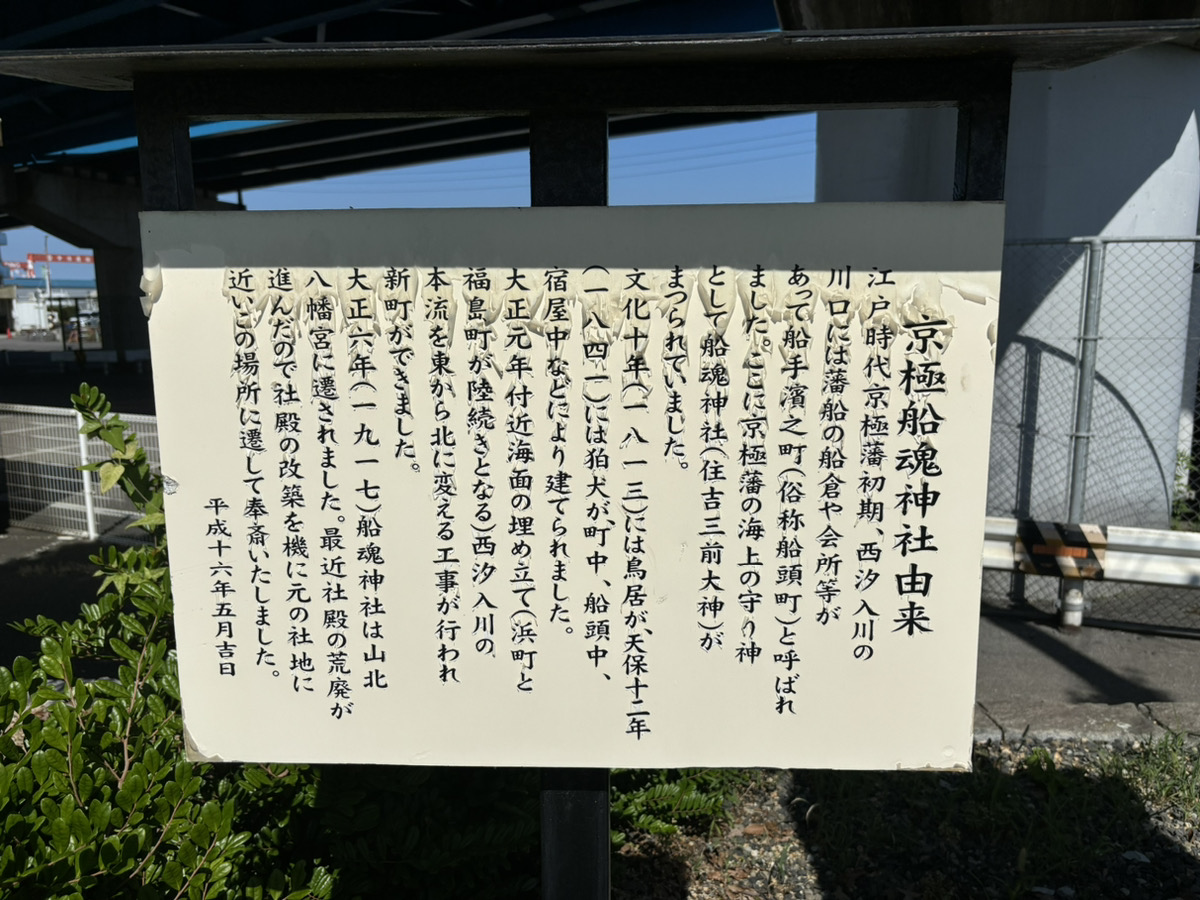 京極船魂神社由来
江戸時代京極藩初期、西汐入川の
川口には藩船の船倉や会所等が
あって船手濱之町(俗称船頭町)と呼ばれ
ました。ここに京極藩の海上の守り神
として船魂神社(住吉三前大神)が
まつられていました。
文化十年(一八一三)には鳥居が、天保十二年
(一八四一)には狛犬が、町中、船頭中、
宿屋中などにより建てられました。
大正元年付近海面の埋め立て(浜町と
福島町が陸続きとなる)西汐入川の
本流を東から北に変える工事が行われ
新町ができました。
大正六年(一九一七)船魂神社は山北
八幡宮に遷されました。最近社殿の荒廃が
進んだので社殿の改築を機に元の社地に
近いこの場所に遷して奉斎いたしました。
平成十六年五月吉日